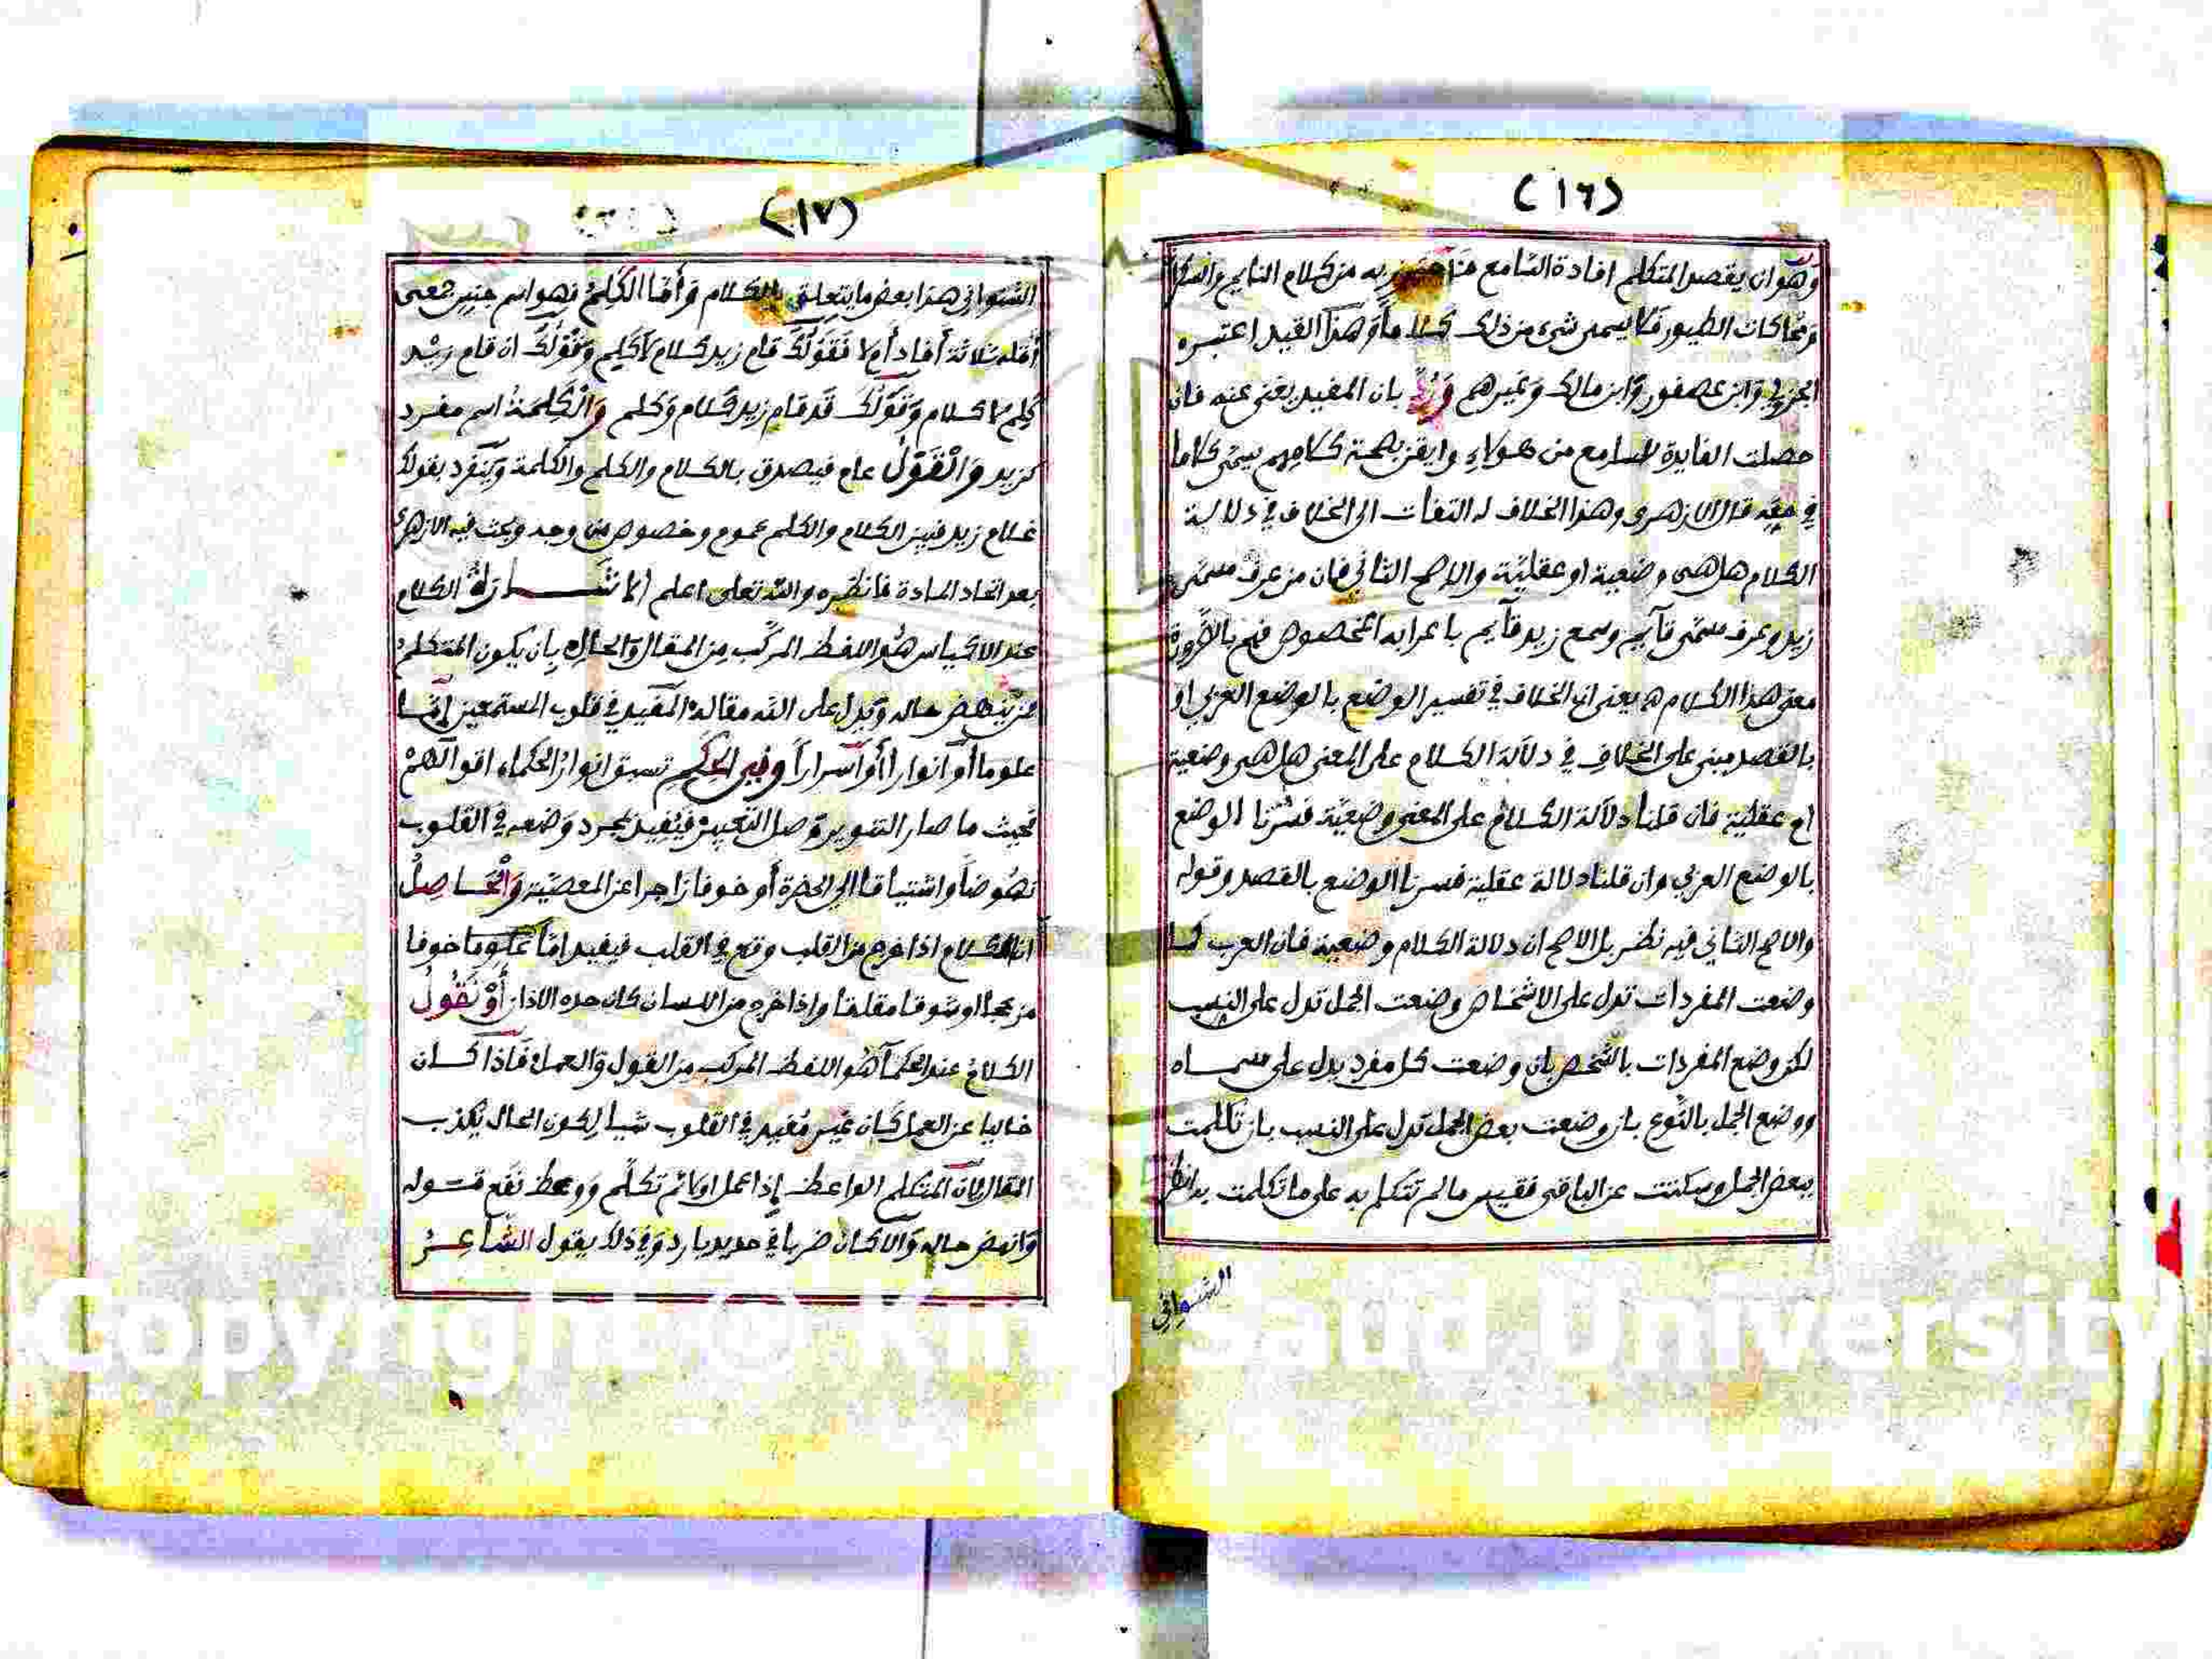 (١٦)
وهو ان يقصد المتكلم افادة السامع به من كلام النايم والسكران
ومحاكات الطيور فلا يسمى شيء من ذلك كلاما وهذا القيد اعتبره
الجزولي وابن عصفور وابن مالك وغيرهم ورد بان المفيد يغني عنه فان
حصلت الفايدة للسامع من هولاء بصحة كلامهم يسمى كلاما
في حقه قال الازهرى وهذا الخلاف له التفات الى الخلاف في دلالة
الكلام هل هى وضعية او عقلية والاصح الثاني فان من عرف مسمى
زيد وعرف مسمى قآيم وسمع زيد قآيم باعرابه المخصوص فهم بالضرورة
معنى هذا الكلام ه يعنى ان الخلاف في تفسير الوضع بالوضع العربي او
بالقصد مبنى على الخلاف في دلالة الكلام على المعنى هل هى وضعية
ام عقلية فان قلنا دلالة الكلام على المعنى وضعية فسرنا الوضع
بالوضع العربي وان قلنا دلالة عقلية فسرنا الوضع بالقصد وقوله
والاصح الثاني فيه نظر بل الاصح ان دلالة الكلام وضعية فان العرب كما
وضعت المفردات تدل على الاشخاص وضعت الجمل تدل على النسب
لكن وضع المفردات بالشخص بان وضعت كل مفرد يدل على مسماه
ووضع الجمل بالنوع بان وضعت بعض الجمل تدل على النسب بان تكلمت
ببعض الجمل وسكتت عن الباقى فقيس ما لم تتكلم به على ما تكلمت به انظر
الشنواني
(١٧)
الشنواني هذا بعض ما يتعلق بالكلام وأما الكلم فهو اسم جنس جمعى
أقله ثلاثة أفاد أم لا فقولك قام زيد كلام لا كلم وقولك ان قام زيد
كلم لا كلام وقولك قد قام زيد كلام وكلم والكلمة اسم مفرد
كزيد والقول عام فيصدق بالكلام والكلم والكلمة وينفرد بقولك
غلام زيد فبين الكلام والكلم عموم وخصوص من وجه وبحث فيه الازهرى
بعد اتحاد المادة فانظره والله تعلى اعلم الاشارة الكلام
عند الاكياس هو اللفظ المركب من المقال والحال بان يكون المتكلم
من ينهض حاله ويدل على الله مقاله المفيد في قلوب المستمعين إما
علوما أو انوارا أو أسرارا وفي الحكم تسبق انوار الحكماء اقوالهم
فحيث ما صار التنوير وصل التعبير فيفيد بمجرد وضعه في القلوب
نهوضا واشتياقا الى الحضرة أو خوفا زاجرا عن المعصية والحاصل
ان الكلام اذا خرج من القلب وقع في القلب فيفيد اما علوما خوفا
مزعجا او شوقا مقلقا واذا خرج من اللسان كان حده الاذان أو نقول
الكلام عند الحكمآ هو اللفظ المركب من القول والعمل فاذا كان
خاليا عن العمل كان غير مفيد في القلوب شيا لكون الحال يكذب
المقال فان المتكلم الواعظ إذا عمل اولا ثم تكلم ووعظ نفع قوله
وانهض حاله والا كان ضربا في حديد بارد وفي ذلك يقول الشاعر
Copyright © King Saud University